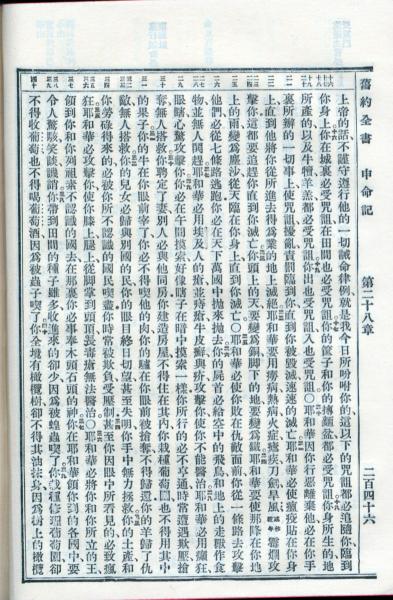 舊約全書 申命記 第二十八章 二百四十六
上帝的話不謹守遵行他的一切誡命律例就是我今日所吩咐你的這以下的咒詛都必追隨你臨到
你身上你在城裏必受咒詛在田間也必受咒詛你的筐子和你的摶麵盆都必受咒詛你身所生的地
所產的以及牛犢羊羔都必受咒詛你出也受咒詛入也受咒詛〇耶和華因你行惡離棄他必在你手
裏所辦的一切事上使咒詛擾亂責罰臨到你直到你被毀滅速速的滅亡耶和華必使瘟疫貼在你身
上直到他將你從所進去得為業的地上滅絕耶和華要用癆病熱病火症瘧疾刀劍旱風霉爛攻
擊你這都要追趕你直到你滅亡你頭上的天要變為銅脚下的地要變為鐵耶和華要使那降在你地
上的雨變為塵沙從天臨在你身上直到你滅亡〇耶和華必使你敗在仇敵面前你從一條路去攻擊
他們必從七條路逃跑你必在天下萬國中拋來拋去你的屍首必給空中的飛鳥和地上的走獸作食
物並無人鬨趕耶和華必用埃及人的瘡並痔瘡牛皮癬與疥攻擊你使你不能醫治耶和華必用癲狂
眼瞎心驚攻擊你你必在午間摸索好像瞎子在暗中摸索一樣你所行的必不亨通時常遭遇欺壓搶
奪無人搭救你聘定了妻別人必與他同房你建造房屋不得住在其內你栽種葡萄園也不得用其中
的果子你的牛在你眼前宰了你必不得喫他的肉你的驢在你眼前被搶奪不得歸還你的羊歸了仇
敵無人搭救你的兒女必歸與別國的民你的眼目終日切望甚至失明你手中無力拯救你的土產和
你勞碌得來的必被你所不認識的國民喫盡你時常被欺負受壓制甚至你因眼中所看見的必致瘋
狂耶和華必攻擊你使你膝上腿上從脚掌到頭頂長毒瘡無法醫治〇耶和華必將你和你所立的王
領到你和你列祖素不認識的國去在那裏你必事奉木頭石頭的神你在耶和華領你到的各國中要
令人驚駭笑談譏誚你帶到田間的種子雖多收進來的卻少因為被蝗蟲喫了你栽種修理葡萄園卻
不得收葡萄也不得喝葡萄酒因為被蟲子喫了你全境有橄欖樹卻不得其油抹身因為樹上的橄欖